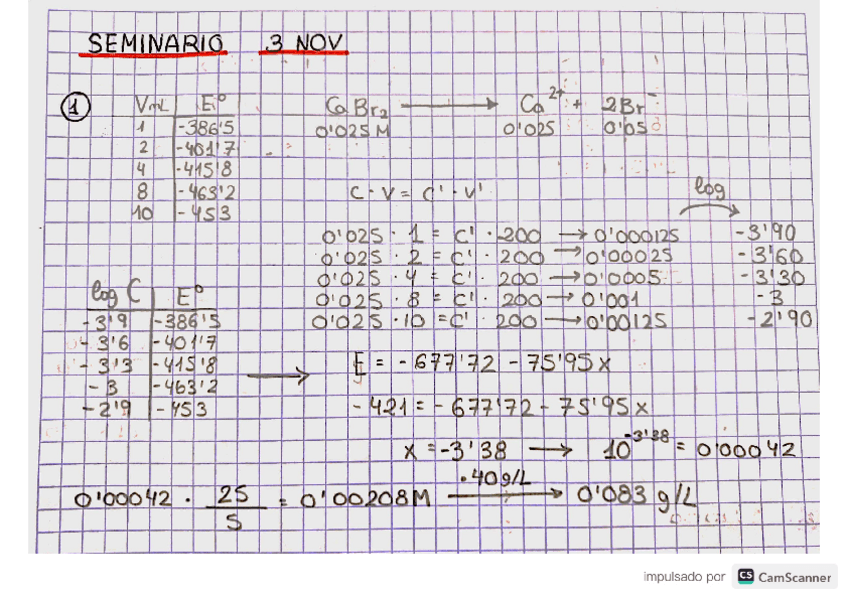 SEMINARIO 3 NOV
1
VmL E°
1 -386'5
2 -401'7
4 -415'8
8 -463'2
10 -453
CaBr₂ → Ca²⁺ + 2Br⁻
0'025M 0'025 0'05
C · V = C' · V'
log
0'025 · 1 = C' · 200 → 0'000125 -3'90
0'025 · 2 = C' · 200 → 0'00025 -3'60
0'025 · 4 = C' · 200 → 0'0005 -3'30
0'025 · 8 = C' · 200 → 0'001 -3
0'025 · 10 = C' · 200 → 0'00125 -2'90
log C E°
-3'9 -386'5
-3'6 -401'7
-3'3 -415'8
-3 -463'2
-2'9 -453
→ E = -677'72 - 75'95x
-421 = -677'72 - 75'95x
x = -3'38 → 10^-3'38 = 0'00042
0'00042 · 25/5 = 0'00208M → ·40g/L 0'083 g/L
impulsado por CS CamScanner